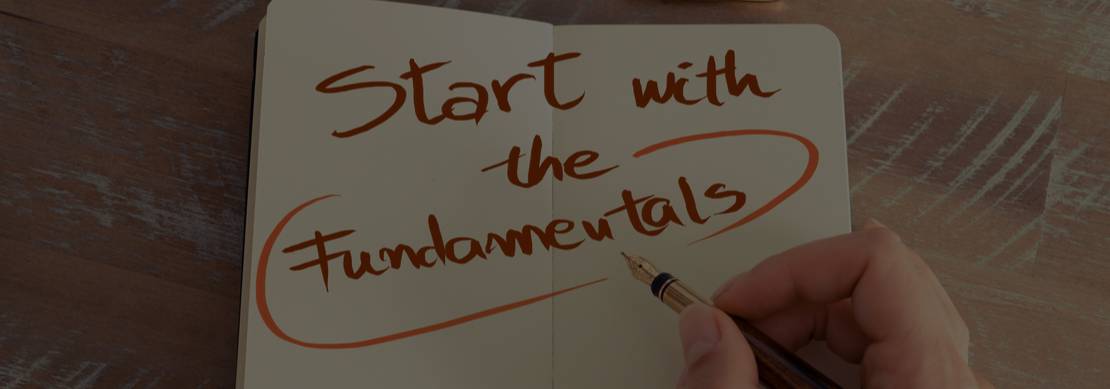 Start with
the
Fundamentals